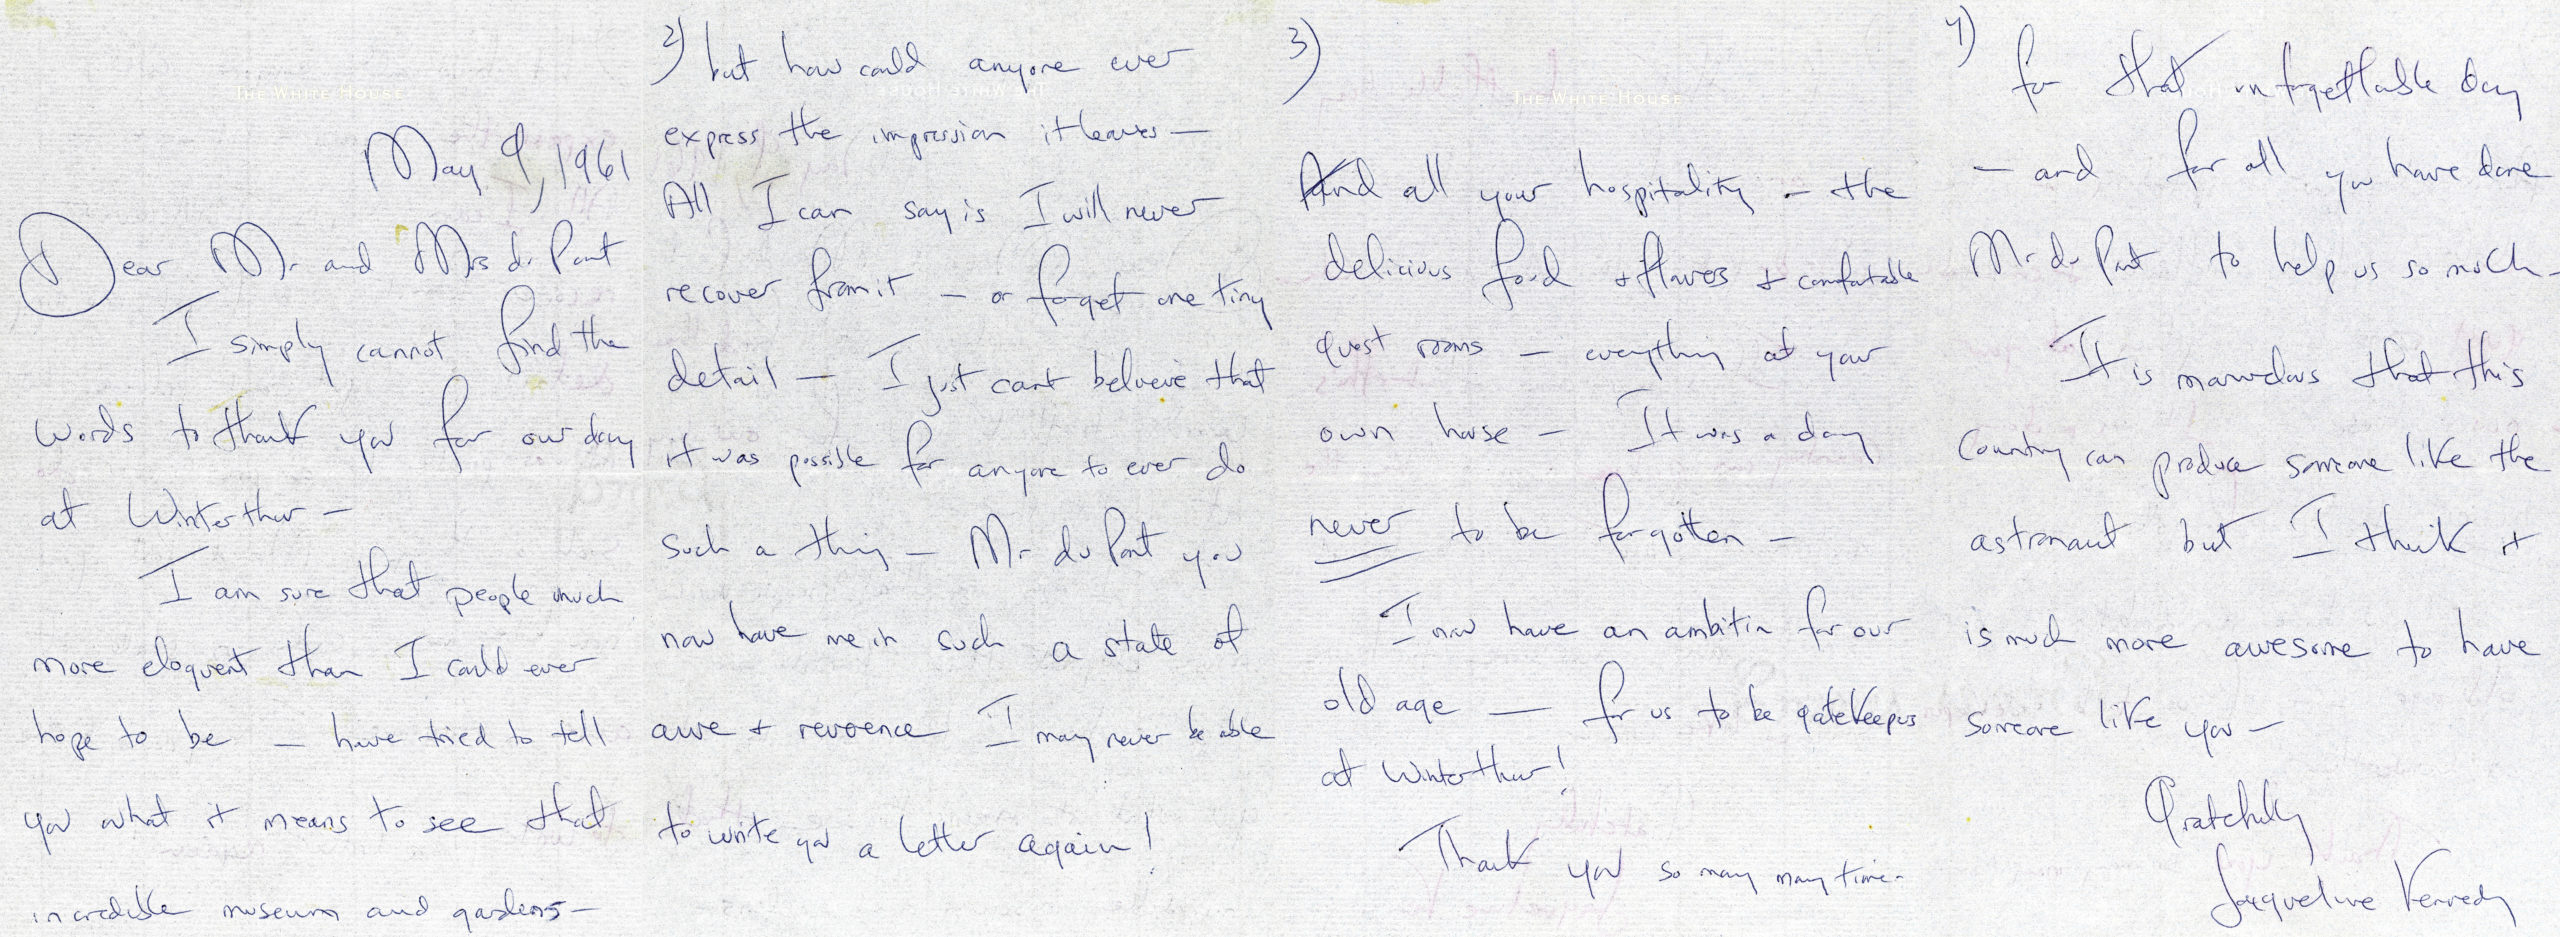 THE WHITE HOUSE
May 9, 1961
Dear Mr and Mrs du Pont
I simply cannot find the
words to thank you for our day
at Winterthur —
I am sure that people much
more eloquent than I could ever
hope to be — have tried to tell
you what it means to see that
incredible museum and gardens —
2)
but how could anyone ever
express the impression it leaves —
All I can say is I will never
recover from it — or forget one tiny
detail — I just cant believe that
it was possible for anyone to ever do
such a thing — Mr du Pont you
now have me in such a state of
awe + reverence I may never be able
to write you a letter again!
3)
THE WHITE HOUSE
And all your hospitality — the
delicious food + flowers + comfortable
guest rooms — everything at your
own house — It was a day
never to be forgotten —
I now have an ambition for our
old age — for us to be gatekeepers
at Winterthur!
Thank you so many many times
4)
for that unforgettable day
— and for all you have done
Mr du Pont to help us so much —
It is marvelous that this
country can produce someone like the
astronaut but I think it
is much more awesome to have
someone like you —
Gratefully
Jacqueline Kennedy